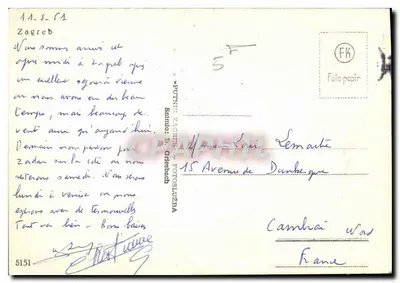 11.8.61
Zagreb
Nous sommes arrivé cet
après midi à Zagreb après
un meilleur séjour à vienne
ou nous avons eu du beau
temps, mais beaucoup de
vent ainsi qu'aujourd'hui.
Demain nous partons pour
zadar sur la côte ou nous
resterons samedi. Nous serons
lundi à venise ou nous
espérons avoir de
Tout va bien - Bons baisers
5151
"PUTNIK" ZAGREB - FOTOSLUŽBA
Snimio: Griesbach
5F
FK
Foto papir
Lemaite
15 Avenue de Dunkerque
Cambrai Nord
France